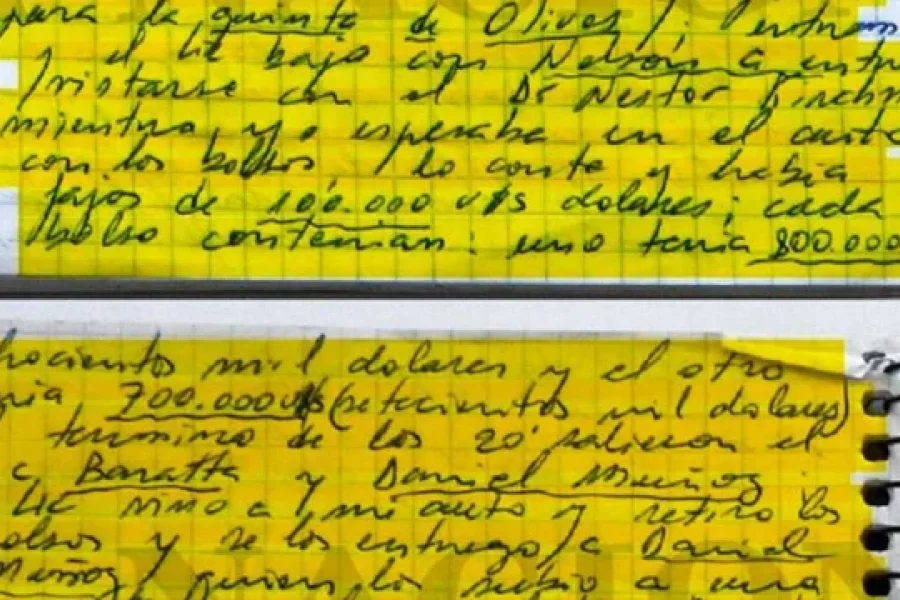 para la quinta de Olivos/; entram
y el Lic bajo con Nelson a entre
/vistarse con el Dr Nestor Kirchn
mientras, yo esperaba en el auto
con los bolsos, /lo conte y habia
fajos de 100.000 u$s dolares; cada
bolso contenian: uno tenia 800.000
hocientos mil dolares y el otro
nia 700.000 u$s (setecientos mil dolares)
termino de los 20' salieron el
c, Baratta y Daniel Muñoz
Lic vino a / mi auto y retiro los
olsos y se los entrego/a Daniel
Muñoz/ quien los subio a una
NACION